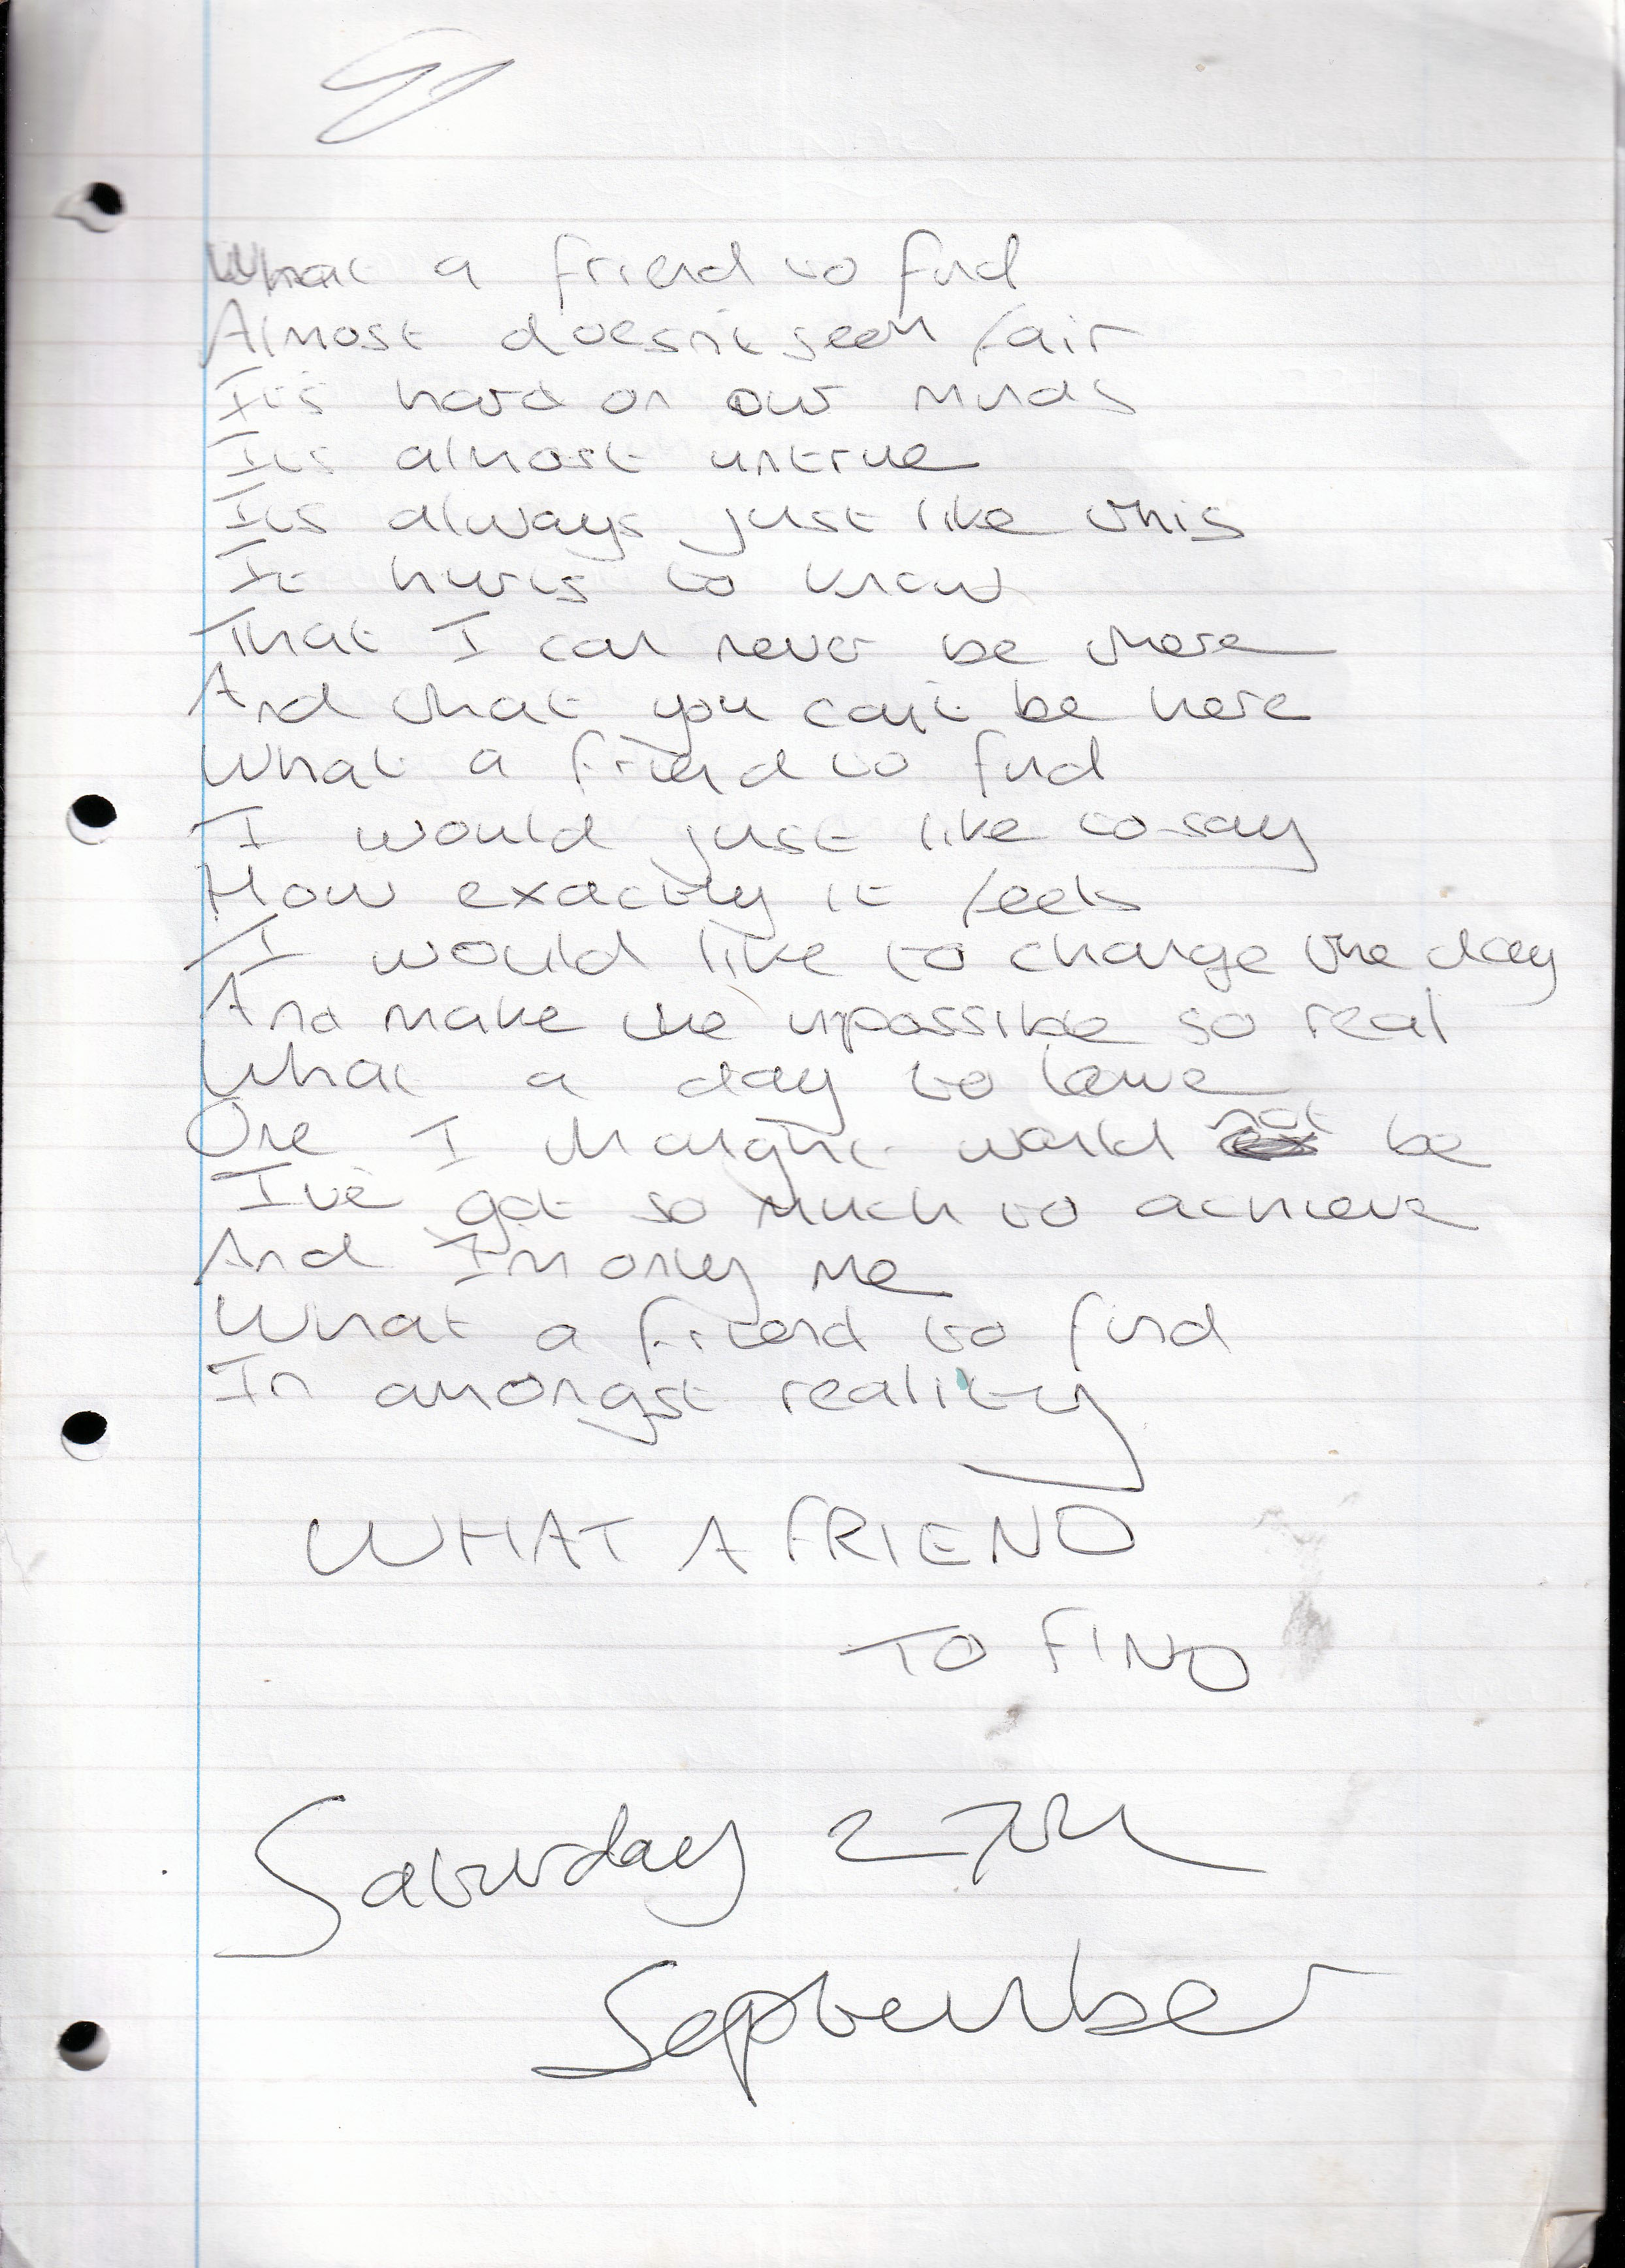 What a friend to find
Almost doesn't seem fair
It's hard on our minds
Its almost untrue
Its always just like this
It hurts to know
That I can never be there
And that you can't be here
What a friend to find
I would just like to say
How exactly it feels
I would like to change the day
And make the impossible so real
What a day to leave
One I thought would not be
I've got so much to achieve
And I'm only me
What a friend to find
In amongst reality
WHAT A FRIEND
TO FIND
Saturday 27th
September